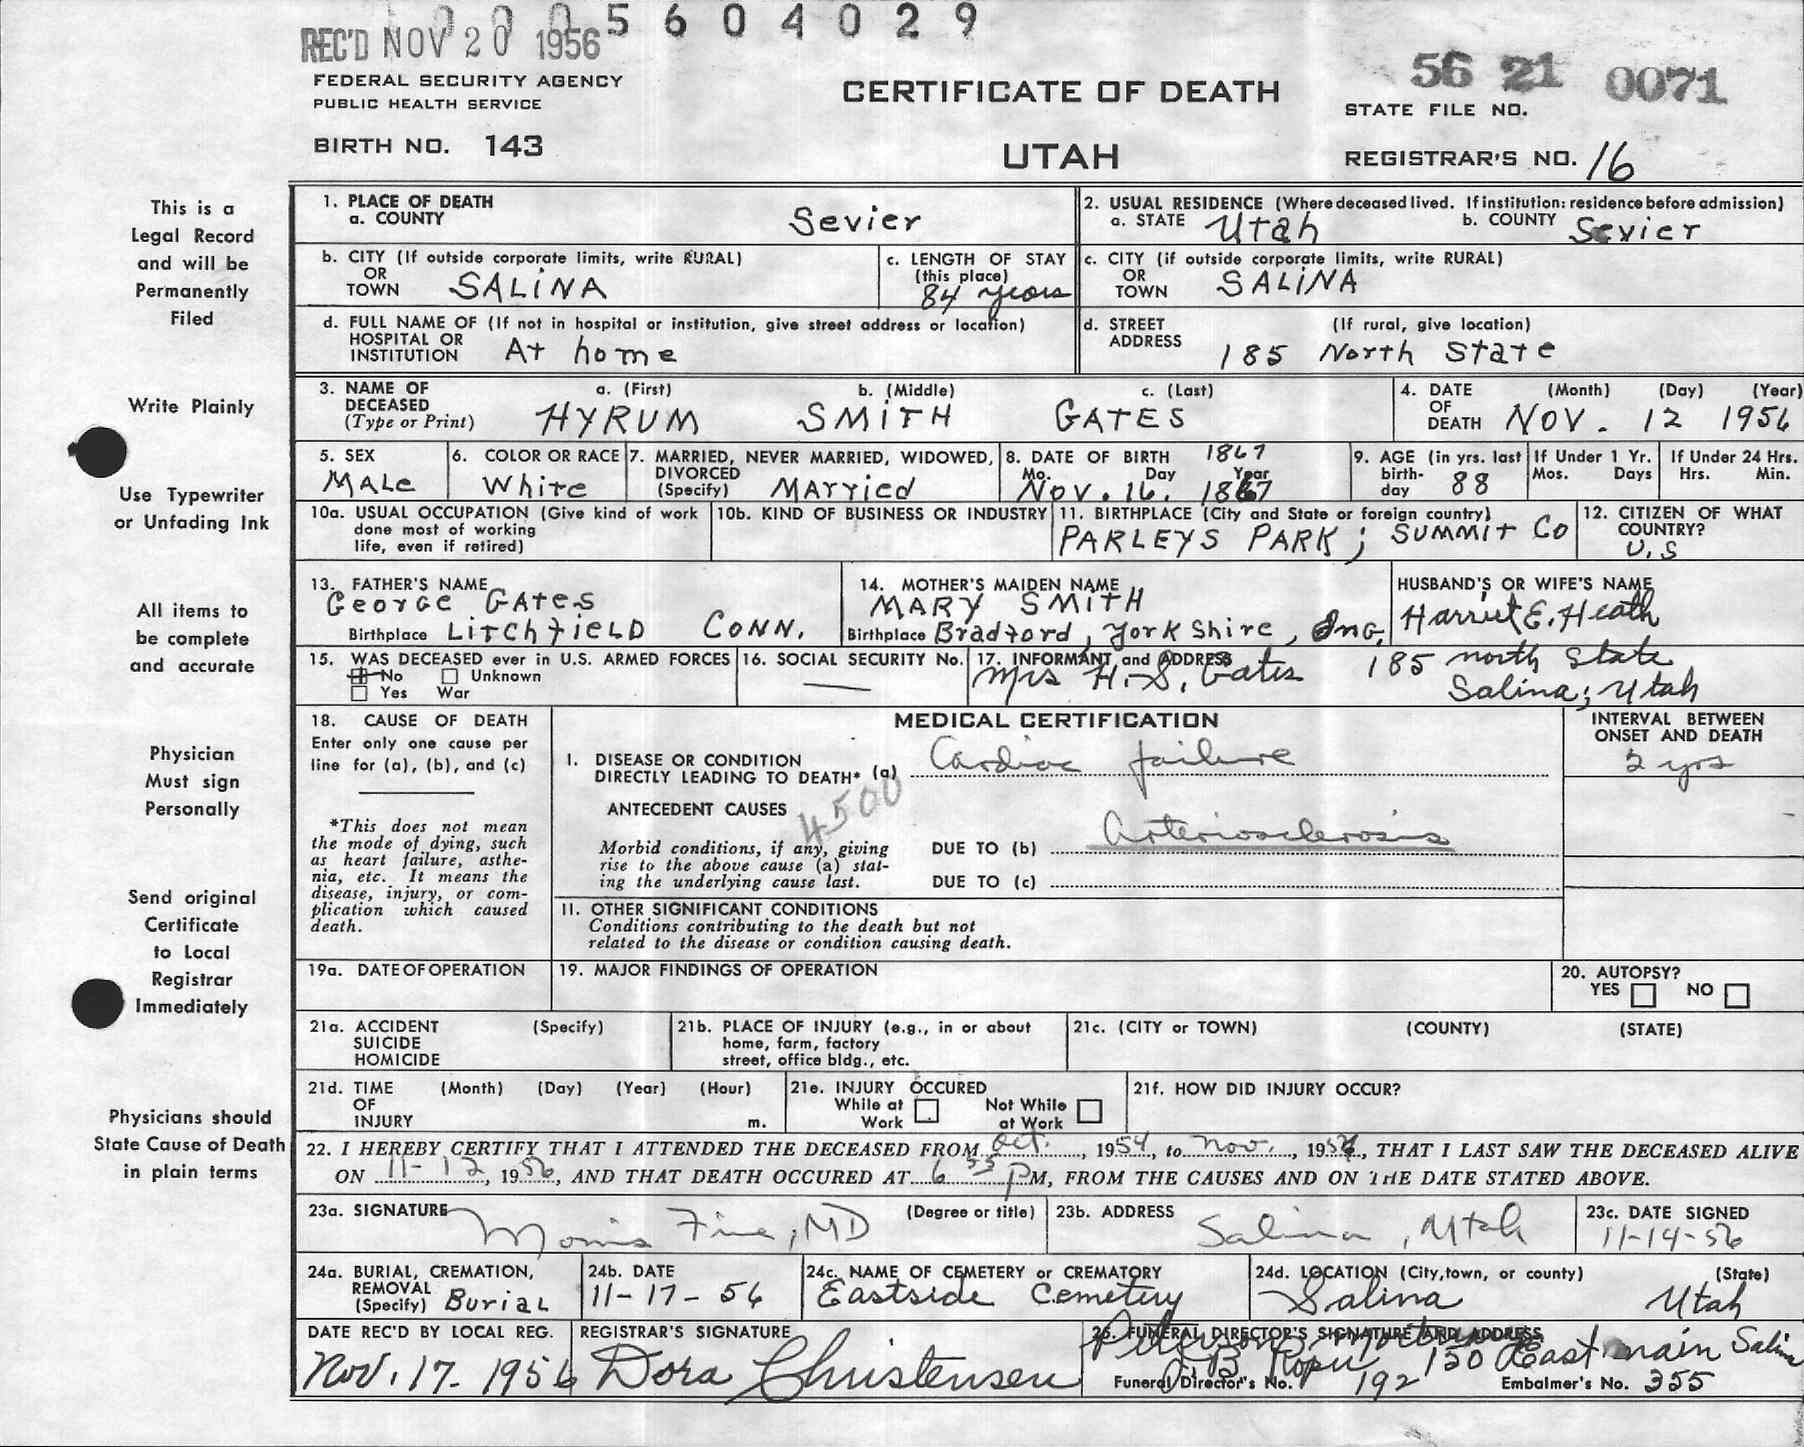 0005604029
REC'D NOV 20 1956
FEDERAL SECURITY AGENCY
PUBLIC HEALTH SERVICE
BIRTH NO. 143
CERTIFICATE OF DEATH
UTAH
56 21 0071
STATE FILE NO.
REGISTRAR'S NO. 16
This is a
Legal Record
and will be
Permanently
Filed
Write Plainly
Use Typewriter
or Unfading Ink
All items to
be complete
and accurate
Physician
Must sign
Personally
Send original
Certificate
to Local
Registrar
Immediately
Physicians should
State Cause of Death
in plain terms
1. PLACE OF DEATH
a. COUNTY Sevier
2. USUAL RESIDENCE (Where deceased lived. If institution: residence before admission)
a. STATE Utah b. COUNTY Sevier
b. CITY (If outside corporate limits, write RURAL)
OR
TOWN SALINA
c. LENGTH OF STAY
(this place)
84 years
c. CITY (if outside corporate limits, write RURAL)
OR
TOWN SALINA
d. FULL NAME OF (If not in hospital or institution, give street address or location)
HOSPITAL OR
INSTITUTION At home
d. STREET (If rural, give location)
ADDRESS 185 North State
3. NAME OF a. (First) b. (Middle) c. (Last)
DECEASED
(Type or Print) HYRUM SMITH GATES
4. DATE (Month) (Day) (Year)
OF
DEATH NOV. 12 1956
5. SEX
Male
6. COLOR OR RACE
White
7. MARRIED, NEVER MARRIED, WIDOWED,
DIVORCED
(Specify) Married
8. DATE OF BIRTH 1867
Mo. Day Year
Nov. 16. 1867
9. AGE (in yrs. last
birth-
day 88
If Under 1 Yr.
Mos. Days
If Under 24 Hrs.
Hrs. Min.
10a. USUAL OCCUPATION (Give kind of work
done most of working
life, even if retired)
10b. KIND OF BUSINESS OR INDUSTRY
11. BIRTHPLACE (City and State or foreign country)
PARLEYS PARK; SUMMIT CO
12. CITIZEN OF WHAT
COUNTRY?
U.S
13. FATHER'S NAME
George Gates
Birthplace Litchfield Conn.
14. MOTHER'S MAIDEN NAME
MARY SMITH
Birthplace Bradford, Yorkshire, Eng.
HUSBAND'S OR WIFE'S NAME
Harriet E. Heath
15. WAS DECEASED ever in U.S. ARMED FORCES
No Unknown
Yes War
16. SOCIAL SECURITY No.
17. INFORMANT and ADDRESS
Mrs H. S. Gates 185 north State
Salina, Utah
18. CAUSE OF DEATH
Enter only one cause per
line for (a), (b), and (c)
*This does not mean
the mode of dying, such
as heart failure, asthe-
nia, etc. It means the
disease, injury, or com-
plication which caused
death.
MEDICAL CERTIFICATION
I. DISEASE OR CONDITION
DIRECTLY LEADING TO DEATH* (a) Cardiac failure
ANTECEDENT CAUSES
4500
Morbid conditions, if any, giving
rise to the above cause (a) stat-
ing the underlying cause last.
DUE TO (b) Arteriosclerosis
DUE TO (c)
II. OTHER SIGNIFICANT CONDITIONS
Conditions contributing to the death but not
related to the disease or condition causing death.
INTERVAL BETWEEN
ONSET AND DEATH
2 yrs
19a. DATE OF OPERATION
19. MAJOR FINDINGS OF OPERATION
20. AUTOPSY?
YES NO
21a. ACCIDENT (Specify)
SUICIDE
HOMICIDE
21b. PLACE OF INJURY (e.g., in or about
home, farm, factory
street, office bldg., etc.
21c. (CITY or TOWN) (COUNTY) (STATE)
21d. TIME (Month) (Day) (Year) (Hour)
OF
INJURY m.
21e. INJURY OCCURED
While at Work Not While at Work
21f. HOW DID INJURY OCCUR?
22. I HEREBY CERTIFY THAT I ATTENDED THE DECEASED FROM Oct., 1954, to Nov., 1956, THAT I LAST SAW THE DECEASED ALIVE
ON 11-12, 1956, AND THAT DEATH OCCURED AT 6 55 PM, FROM THE CAUSES AND ON THE DATE STATED ABOVE.
23a. SIGNATURE (Degree or title)
Morris Fine, MD
23b. ADDRESS
Salina, Utah
23c. DATE SIGNED
11-14-56
24a. BURIAL, CREMATION,
REMOVAL
(Specify) Burial
24b. DATE
11-17-56
24c. NAME OF CEMETERY or CREMATORY
Eastside Cemetery
24d. LOCATION (City,town, or county) (State)
Salina Utah
DATE REC'D BY LOCAL REG.
Nov. 17. 1956
REGISTRAR'S SIGNATURE
Dora Christensen
25. FUNERAL DIRECTOR'S SIGNATURE AND ADDRESS
150 East main Salina
Funeral Director's No. 192 Embalmer's No. 355